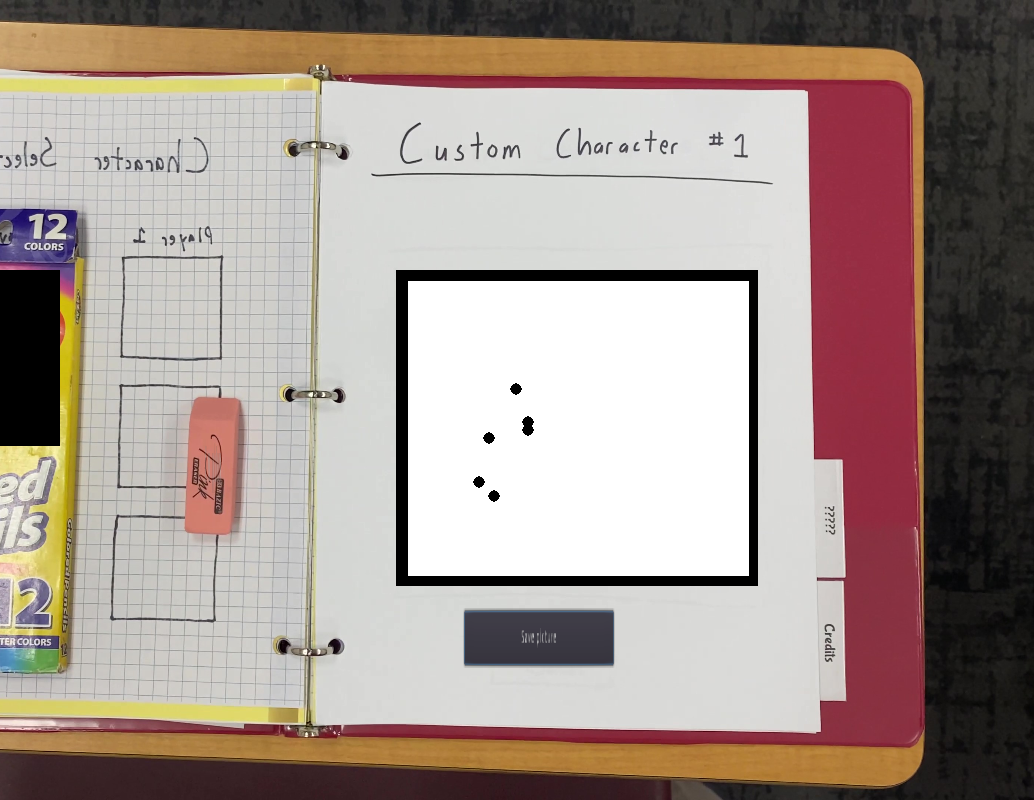 Character Selec
Player 1
12
COLORS
ed
ils
12
TER COLORS
Pink
Custom Character #1
Save picture
?????
Credits